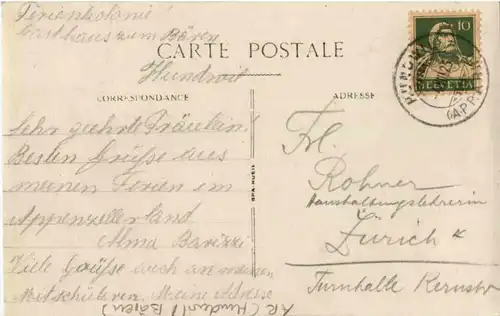 Ferienkolonie!
Gasthaus zum Bären
Hundwil
CARTE POSTALE
CORRESPONDANCE
ADRESSE
10
HELVETIA
HUNDWIL
(APP.
Sehr geehrte Fräulein!
Besten Grüsse aus
meinen Ferien im
Appenzellerland
Alma
Viele Grüsse auch an anderen
Mitschüleren. Meine Adresse
AR (Hundwil Bären)
Frl.
Rohner
Haushaltungslehrerin
Zürich 4
Turnhalle Kernstr